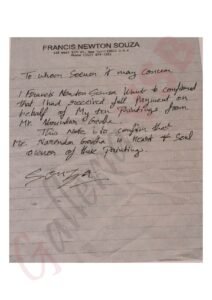 FRANCIS NEWTON SOUZA
To whom Soever it may Concern
I Francis Newton Souza want to confirmed
that I had received full Payment on
behalf of My ten Paintings from
Mr. Narendra
This Note is to confirm that
Mr. Narendra is Heart & Soul
owner of thse Paintings.
Souza